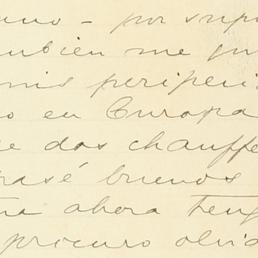 uno - por supu
ambien me gu
mis peripeci
o en Europa
e dos chauffe
pasé buenos
ahora teng
procuro olvid